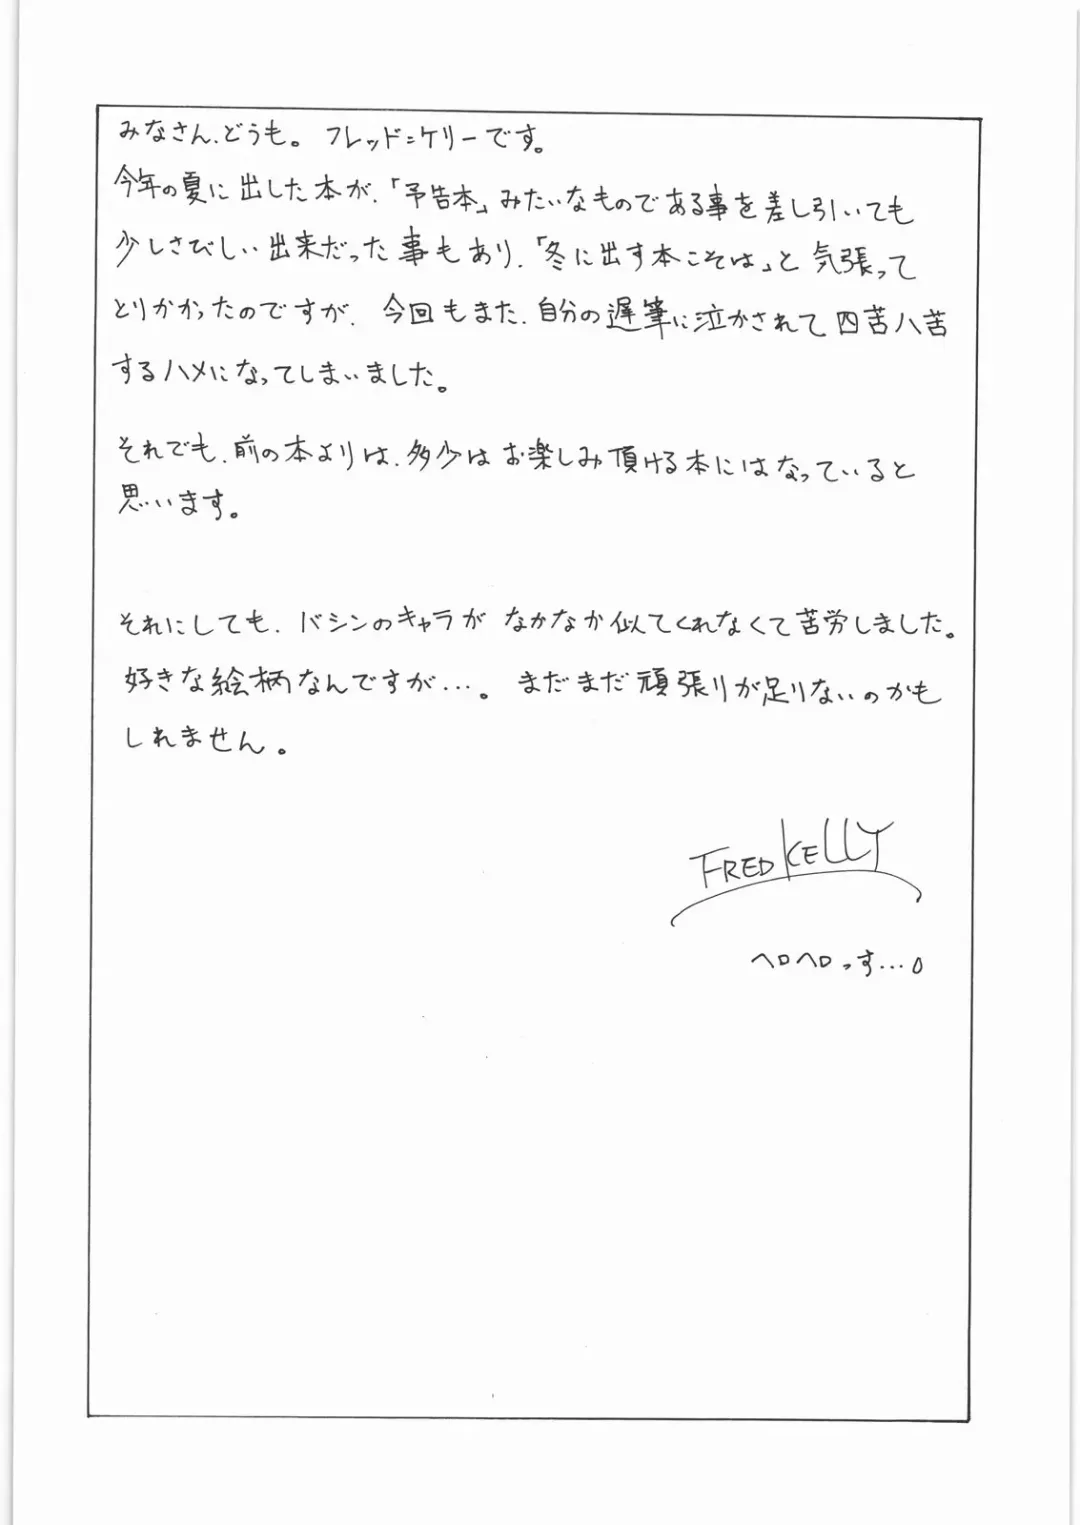 みなさん、どうも。 フレッド=ケリーです。
今年の夏に出した本が、「予告本」みたいなものである事を差し引いても
少しさびしい出来だった事もあり、「冬に出す本こそは」と気張って
とりかかったのですが、今回もまた、自分の遅筆に泣かされて四苦八苦
するハメになってしまいました。
それでも、前の本よりは、多少はお楽しみ頂ける本にはなっていると
思います。
それにしても、バシンのキャラがなかなか似てくれなくて苦労しました。
好きな絵柄なんですが…。まだまだ頑張りが足りないのかも
しれません。
FRED KELLY
ヘロヘロっす…。